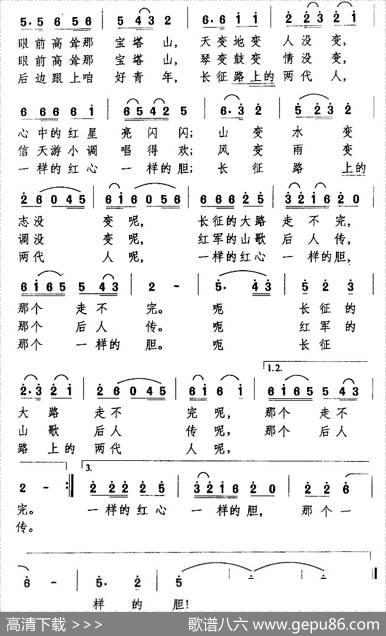 5. 3 5 6 5 6 5 5 4 3 2 6. 6 i i 2 2 3 2 i
眼前高耸那 宝塔山, 天变地变 人没变,
眼前高耸那 宝塔山, 琴变鼓变 情没变,
后边跟上咱 好青年, 长征路上的两代人,
6 6 6 6 i 6 5 4 2 5 6. 3 2 5 2 3 2
心中的红星 亮闪闪; 山 变 水 变
信天游小调 唱得欢; 风 变 雨 变
一样的红心 一样的胆; 长 征 路 上的
2 6 0 4 5 6 i 6 0 5 6 2 2 2 2 5 3 2 1 2 0
志没 变呢, 长征的大路 走不完,
调没 变呢, 红军的山歌 后人传,
两代 人呢, 一样的红心 一样的胆,
6 i 6 5 5 4 3 2 - 5. 4 3
那个 走不 完。 呃 长征的
那个 后人 传。 呃 红军的
那个 一样的 胆。 呃 长征
1.2.
2. 3 2 1 2 6 0 4 5 6 i 6 i 6 i 6 5 5 4 3
大 路 走不 完呢, 那个 走不
山 歌 后人 传呢, 那个 后人
路 上的 两代 人呢,
3.
2 - :‖ 2 2 2 2 5 3 2 1 6 2 0 2 2 6
完。 一样的红心 一样的胆, 那个一
传。
6 - 5. 2 5 - - -
样 的 胆!
高清下载 >>> 歌谱八六 www.gepu86.com